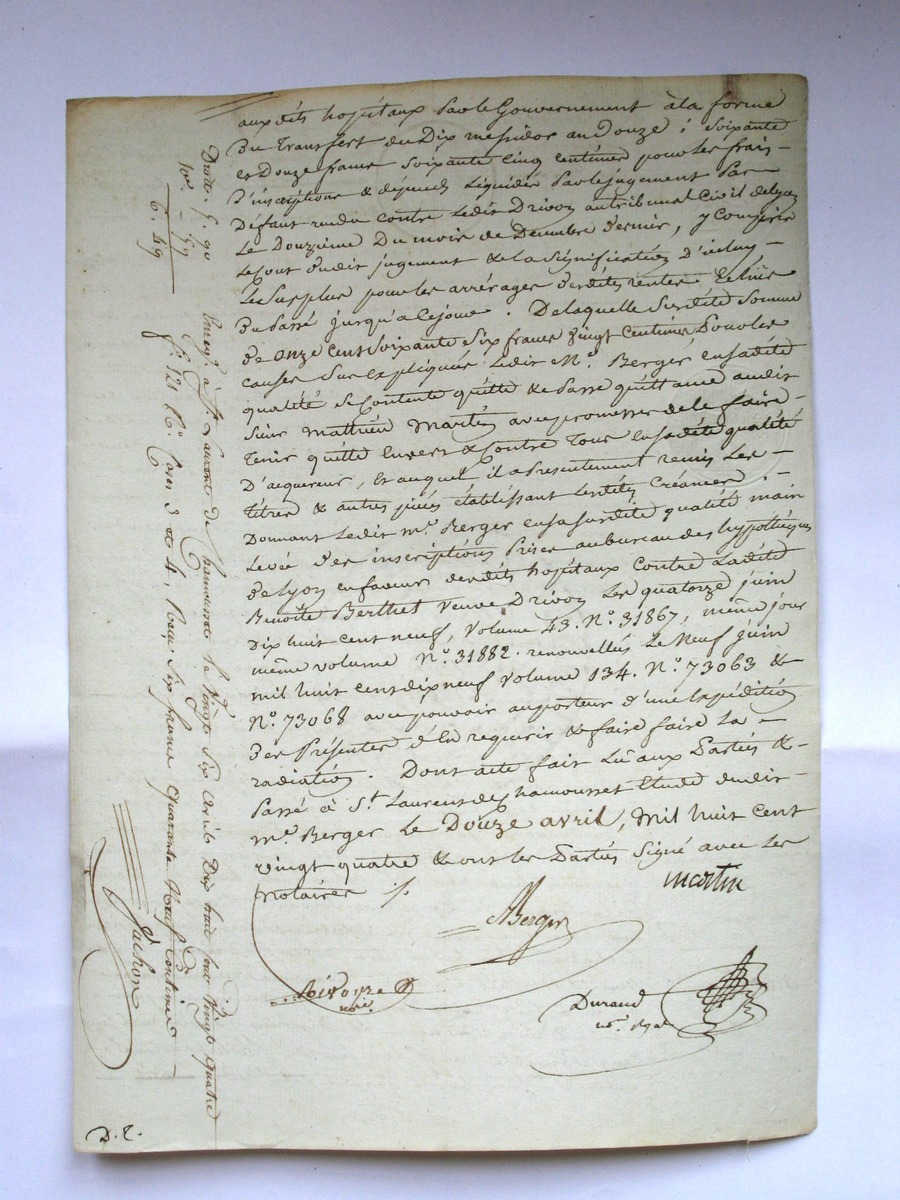 auxdits hopitaux par le Gouvernement à la forme
Du transfert du Dix messidor an Douze ; Soixante
et Douze francs soixante cinq centimes pour les frais -
D'inscriptions & dépends liquidés par le jugement par
Défaut rendu contre ledit Drivon au tribunal Civil de Lyon
Le Douzième Du mois de Decembre dernier, y compris
le cout dudit jugement & de la signification d'icelui -
Le surplus pour les arrérages desdites rentes
Du passé jusqu'a ce jour. De laquelle susdite somme
de onze cent soixante six francs vingt centimes pour les
causes sus expliquées ledit Me. Berger en sadite
qualité se contente quitte & passe quittance audit
sieur Mathieu Martin avec promesse de le faire -
tenir quitte envers & contre tous en sadite qualité
D'acquereur, et auquel il a présentement remis les -
titres & autres pièces établissant lesdites Créances ; -
Donnant ledit me. Berger en sa susdite qualité main
Levée des inscriptions prises au bureau des hypothèques
de Lyon en faveur desdits hopitaux contre ladite
Benoite Berthet veuve Drivon les quatorze juin
Dix huit cent neuf, volume 43. No. 31867, même jour
même volume No. 31882. renouvellées le Neuf juin
mil huit cent dix neuf volume 134. No. 73063 &
No. 73068 avec pouvoir au porteur d'une expédition
des présentes d'en requerir & faire faire la =
radiation. Dont acte fait lu aux Parties &
Passé à St. Laurent de Chamousset Etude dudit -
me. Berger le Douze avril, mil huit cent
vingt quatre & ont les Parties signé avec les
Notaires ./.
martin
Berger
Durand
Droits. 5. 90
10e. - 59
6. 49
Enregt. à St. Laurent de Chamousset le Vingt Six Avril Dix huit cent Vingt quatre
fo. 121 Ro. Cases 3 et 4, Reçu six francs quarante Neuf Centimes
D. E.